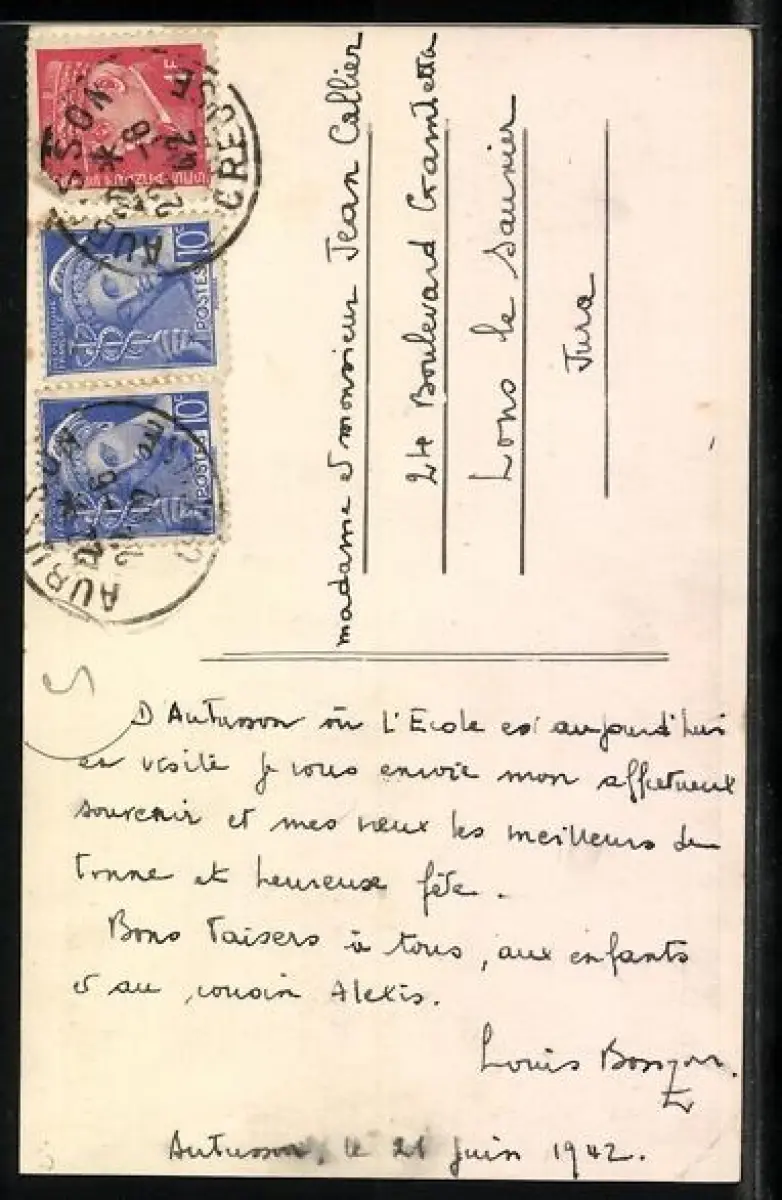 1F
AUBUSSON
22-6 42
CREUSE
10c
POSTES
10c
POSTES
AUBUSSON
madame et monsieur Jean Callier
24 Boulevard Gambetta
Lons le Saunier
Jura
D'Aubusson où l'Ecole est aujourd'hui
en visite je vous envoie mon affectueux
souvenir et mes vœux les meilleurs de
bonne et heureuse fête.
Bons baisers à tous, aux enfants
et au cousin Alexis.
Louis
Aubusson, le 21 juin 1942.